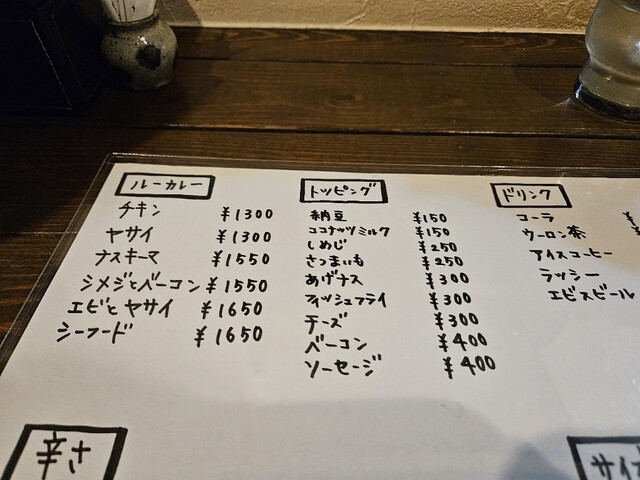 ルーカレー
チキン ¥1300
ヤサイ ¥1300
ナスキーマ ¥1550
シメジとベーコン ¥1550
エビとヤサイ ¥1650
シーフード ¥1650
トッピング
納豆 ¥150
ココナッツミルク ¥150
しめじ ¥250
さつまいも ¥250
あげナス ¥300
フィッシュフライ ¥300
チーズ ¥300
ベーコン ¥400
ソーセージ ¥400
ドリンク
コーラ ¥
ウーロン茶 ¥
アイスコーヒー
ラッシー
エビスビール
辛さ
サイ